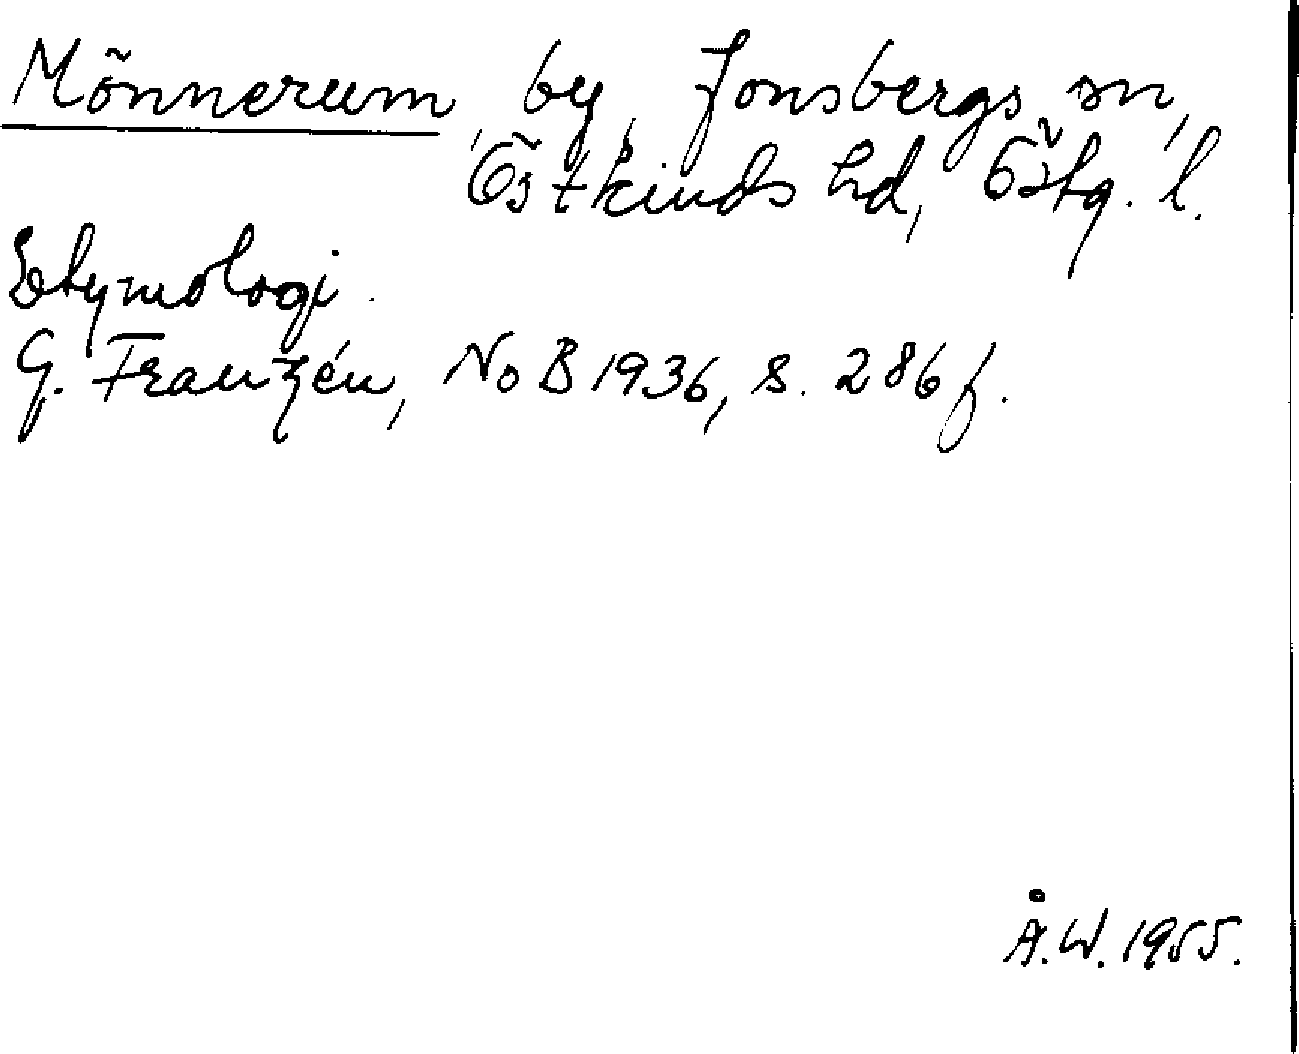 Mönnerum, by, Jonsbergs sn,
Östkinds hd, Östg. l.
Etymologi.
G. Franzén, NoB 1936, s. 286 f.
Å.W. 1955.